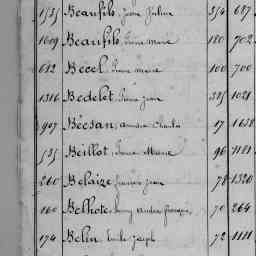 1535 Beaufils, Jean Julien 354 687
1609 Beaufils, Pierre Marie 180 702
682 Bécel Pierre Marie 100 700
1316 Bedelet Pierre Jean 325 1021
907 Béesan, Amand Charles 17 1658
535 Beillot, Pierre Marie 96 1181
260 Belaize François Jean 78 1320
160 Belhote, François 70 264
174 Belin Emile Joseph 72 1111